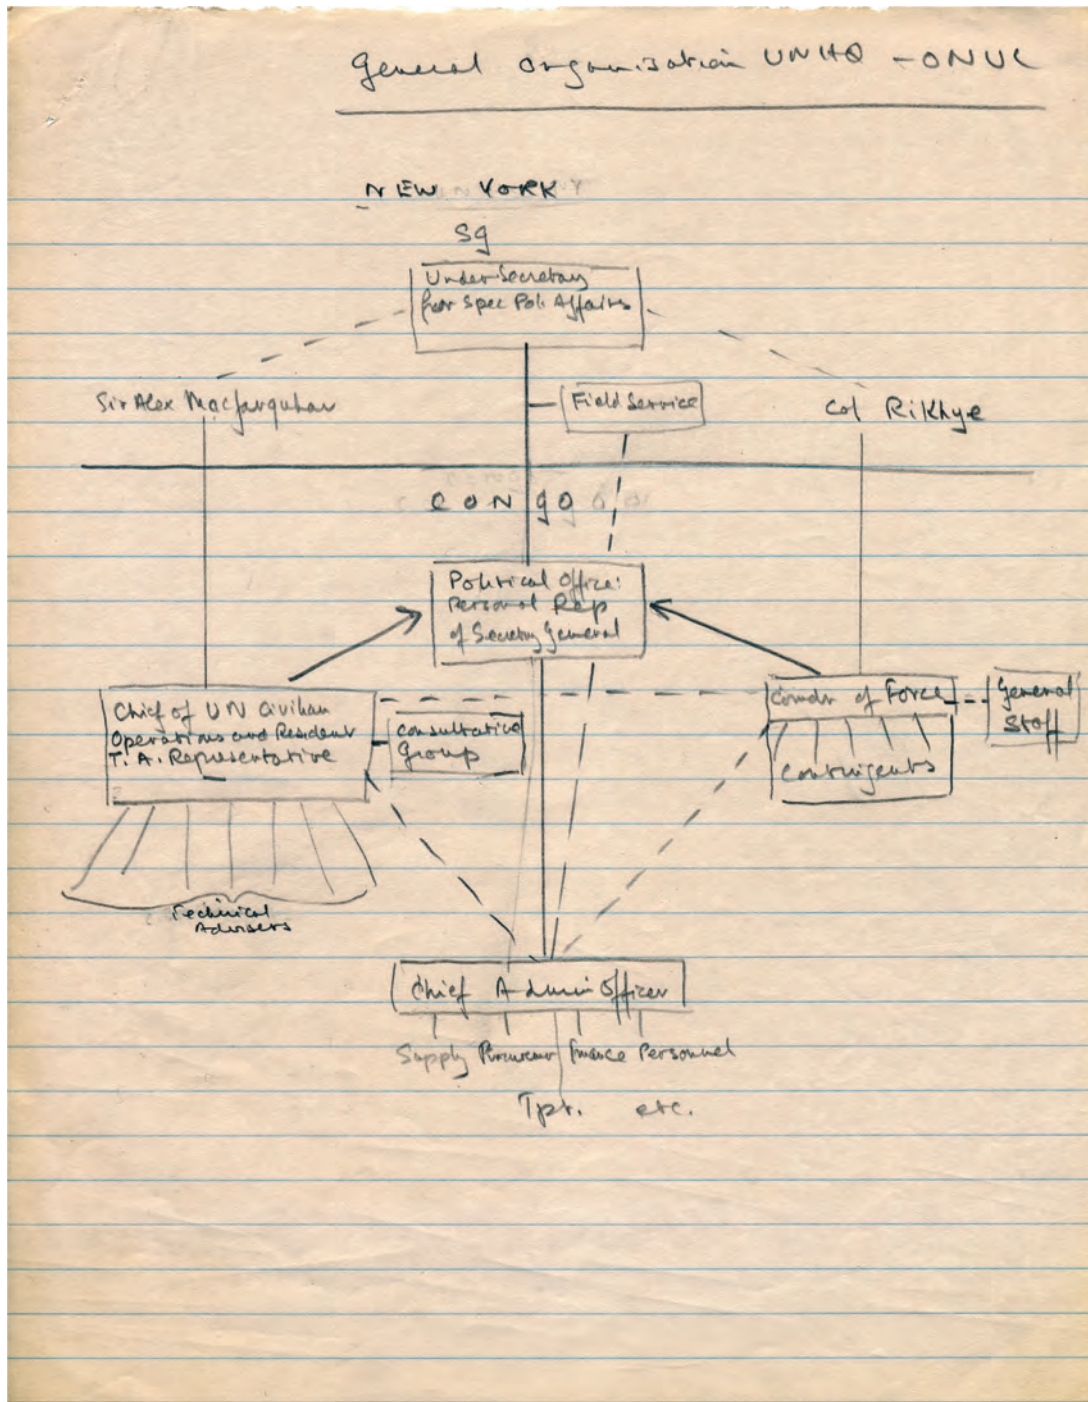 General Organisation UNHQ - ONUC
NEW YORK
SG
Under-Secretary
for Spec Pol. Affairs
Sir Alex MacFarquhar
Field Service
Col Rikhye
CONGO
Political Office:
Personal Rep
of Secretary General
Chief of UN Civilian
Operations and Resident
T. A. Representative
Consultative
Group
Comdr of Force
General
Staff
Contingents
Technical
Advisers
Chief Admin Officer
Supply
Finance Personnel
Tpt. etc.